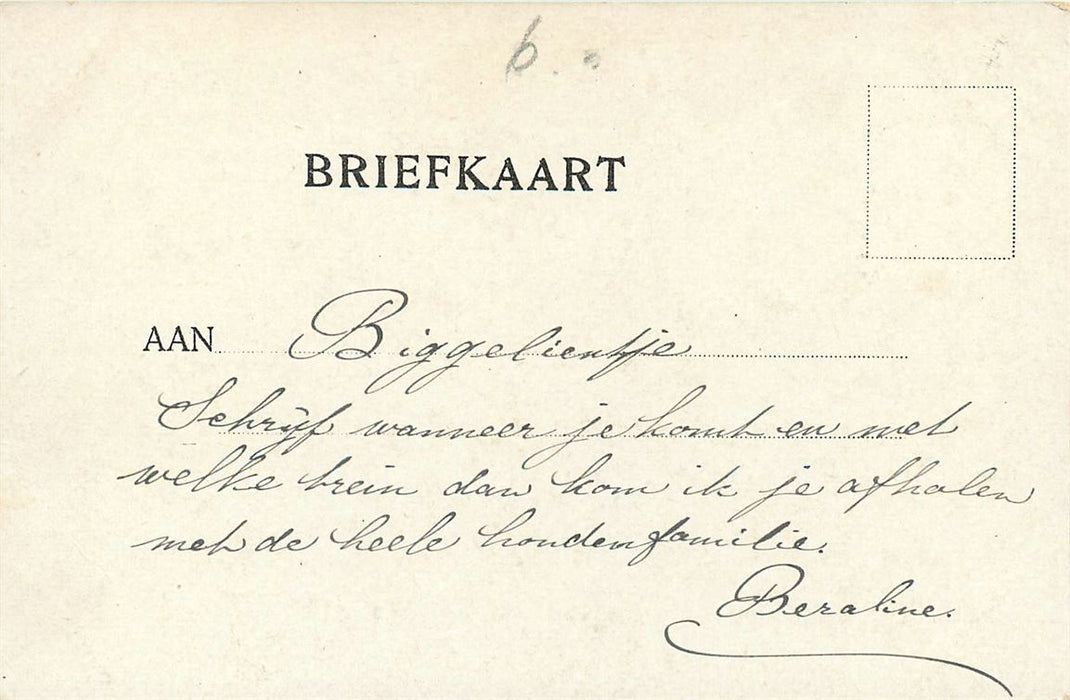 6.
BRIEFKAART
AAN Biggelientje
Schrijf wanneer je komt en met
welke trein dan kom ik je afholen
met de heele hondenfamilie.
Beraline.